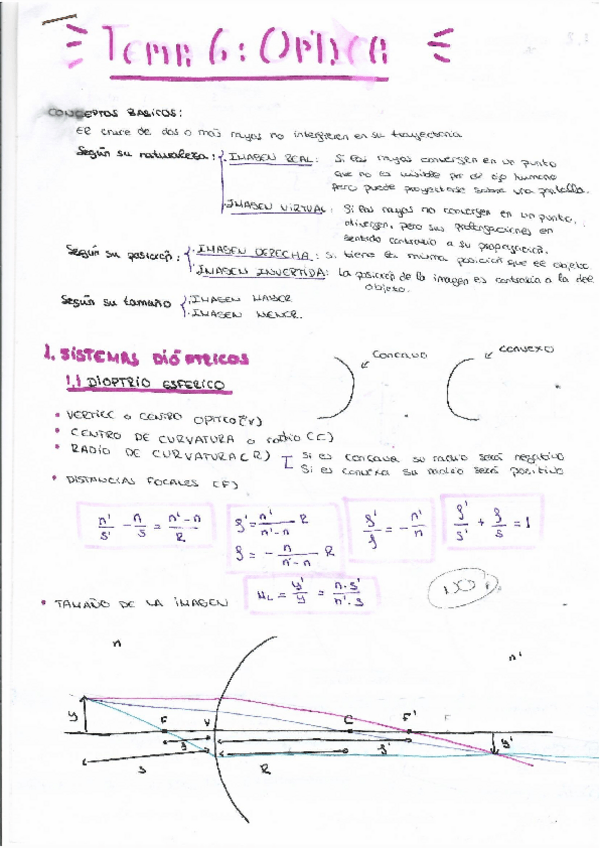 Tema 6: OPTICA
CONCEPTOS BASICOS:
El cruce de dos o más rayos no interfieren en su trayectoria
Según su naturaleza: IMAGEN REAL: Si los rayos convergen en un punto
que no es visible por el ojo humano
pero puede proyectarse sobre una pantalla.
IMAGEN VIRTUAL: Si los rayos no convergen en un punto,
divergen, pero sus prolongaciones en
sentido contrario a su propagación.
Según su posición: IMAGEN DERECHA: Si tiene la misma posición que el objeto.
IMAGEN INVERTIDA: La posición de la imagen es contraria a la del
objeto.
Según su tamaño IMAGEN MAYOR
IMAGEN MENOR.
1. SISTEMAS DIÓPTRICOS
CONCAVO
CONVEXO
1.1 DIOPTRIO ESFERICO
• VERTICE o CENTRO OPTICO (V)
• CENTRO DE CURVATURA o radio (C)
• RADIO DE CURVATURA (R) Si es concava su radio será negativo
Si es convexa su radio será positivo
• DISTANCIAS FOCALES (F)
n'/s' - n/s = n'-n/R
f' = n'/n'-n R
f = - n/n'-n R
f'/f = - n'/n
f'/s' + f/s = 1
• TAMAÑO DE LA IMAGEN
ML = y'/y = n·s'/n'·s
n
n'
y
F
V
C
F'
F
f
f'
y'
s
R